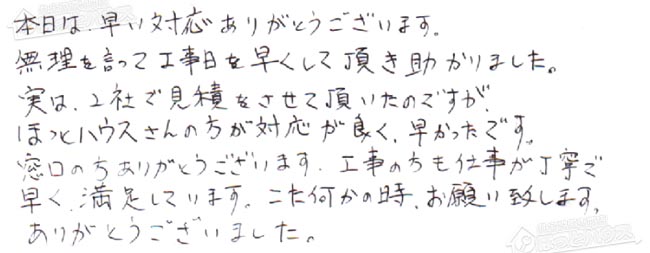 本日は、早い対応ありがとうございます。
無理を言って工事日を早くして頂き助かりました。
実は、2社で見積をさせて頂いたのですが、
ほっとハウスさんの方が対応が良く、早かったです。
窓口の方ありがとうございます。工事の方も仕事が丁寧で
早く、満足しています。また何かの時、お願い致します。
ありがとうございました。